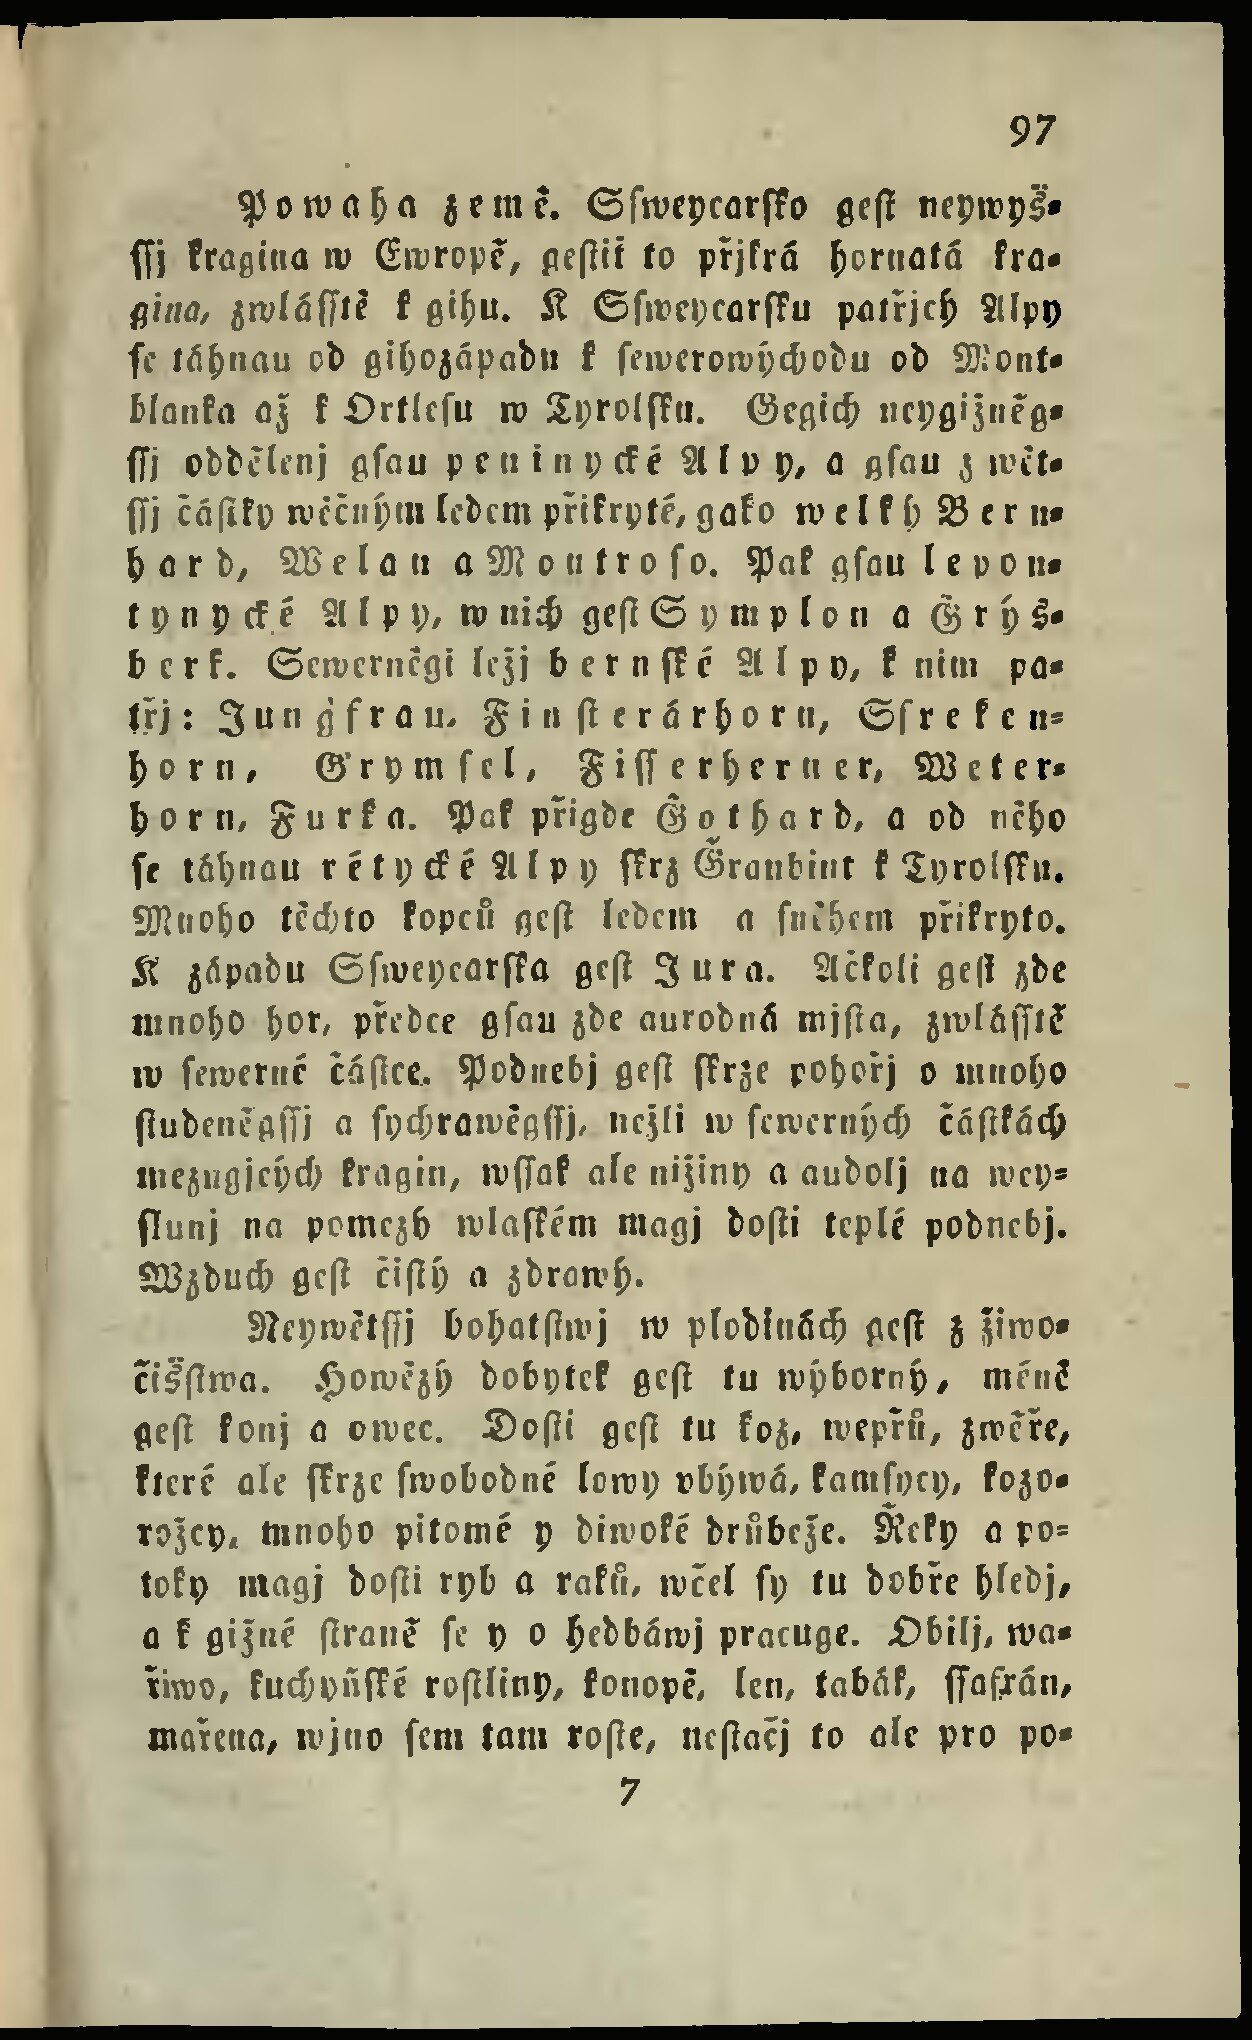 97
Powaha země. Sſweycarſko geſt neywyš-
ſſj kragina w Ewropě, geſtiť to přjkrá hornatá kra-
gina, zwláſſtě k gihu. K Sſweycarſku patřjch Alpy
ſe táhnau od gihozápadu k ſewerowýchodu od Mont-
blanka až k Ortleſu w Tyrolſku. Gegich neygižněg-
ſſj oddělenj gſau peninycké Alpy, a gſau z wět-
ſſj čáſtky wěčným ledem přikryté, gako welký Bern-
hard, Welan a Montroſo. Pak gſau lepon-
tynycké Alpy, w nich geſt Symplon a Ğrýs-
berk. Sewerněgi ležj bernſké Alpy, k nim pa-
třj: Jungfrau, Finſterárhorn, Sſreken-
horn, Grymſel, Fiſſerherner, Weter-
horn, Furka. Pak přigde Ğothard, a od něho
ſe táhnau rétycké Alpy ſkrz Ğraubint k Tyrolſku.
Mnoho těchto kopců geſt ledem a ſněhem přikryto.
K západu Sſweycarſka geſt Jura. Ačkoli geſt zde
mnoho hor, předce gſau zde aurodná mjſta, zwláſſtě
w ſewerné čáſtce. Podnebj geſt ſkrze pohořj o mnoho
ſtudeněgſſj a ſychrawěgſſj, nežli w ſewerných čáſtkách
mezugjcých kragin, wſſak ale nižiny a audolj na wey-
ſlunj na pomezý wlaſkém magj doſti teplé podnebj.
Wzduch geſt čiſtý a zdrawý.
Neywětſſj bohatſtwj w plodinách geſt z žiwo-
čišſtwa. Howězý dobytek geſt tu wýborný, méně
geſt konj a owec. Doſti geſt tu koz, wepřů, zwěře,
které ale ſkrze ſwobodné lowy vbýwá, kamſycy, kozo-
rožcy, mnoho pitomé y diwoké drůbeže. Řeky a po-
toky magj doſti ryb a raků, wčel ſy tu dobře hledj,
a k gižné ſtraně ſe y o hedbáwj pracuge. Obilj, wa-
řiwo, kuchyňſké roſtliny, konopě, len, tabák, ſſafrán,
mařena, wjno ſem tam roſte, neſtačj to ale pro po-
7